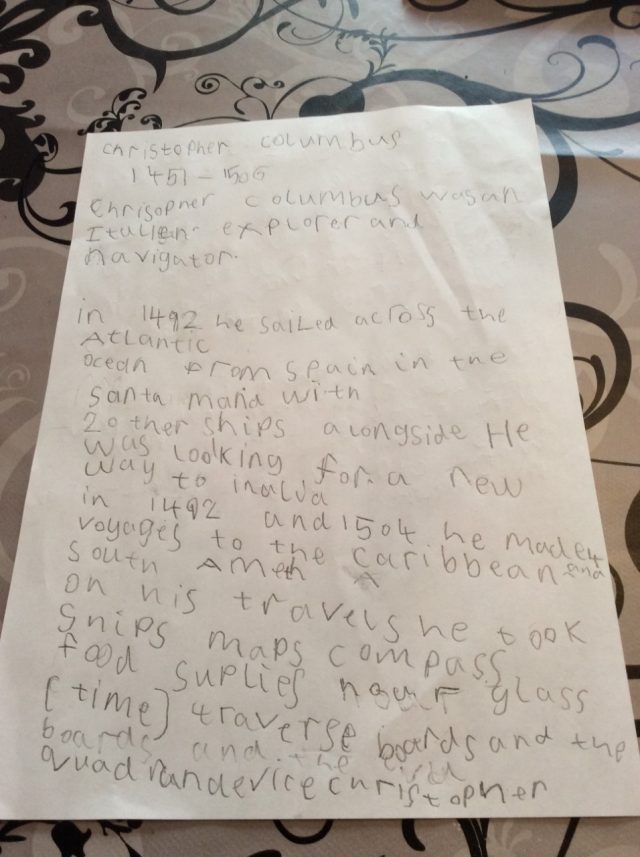 Christopher columbus
1451-1506
Chrisopner columbus wasan
Italien explorer and
navigator.
in 1492 he sailed across the
Atlantic
ocean from spain in the
santa maria with
2 other ships alongside He
was looking for a new
way to
in 1492 and 1504 he made 4
voyages to the caribbean and
south
on his travels he took
ships maps compass
food suplies hour glass
[time] traverse boards and the
boards and the
quadrandevice christopher